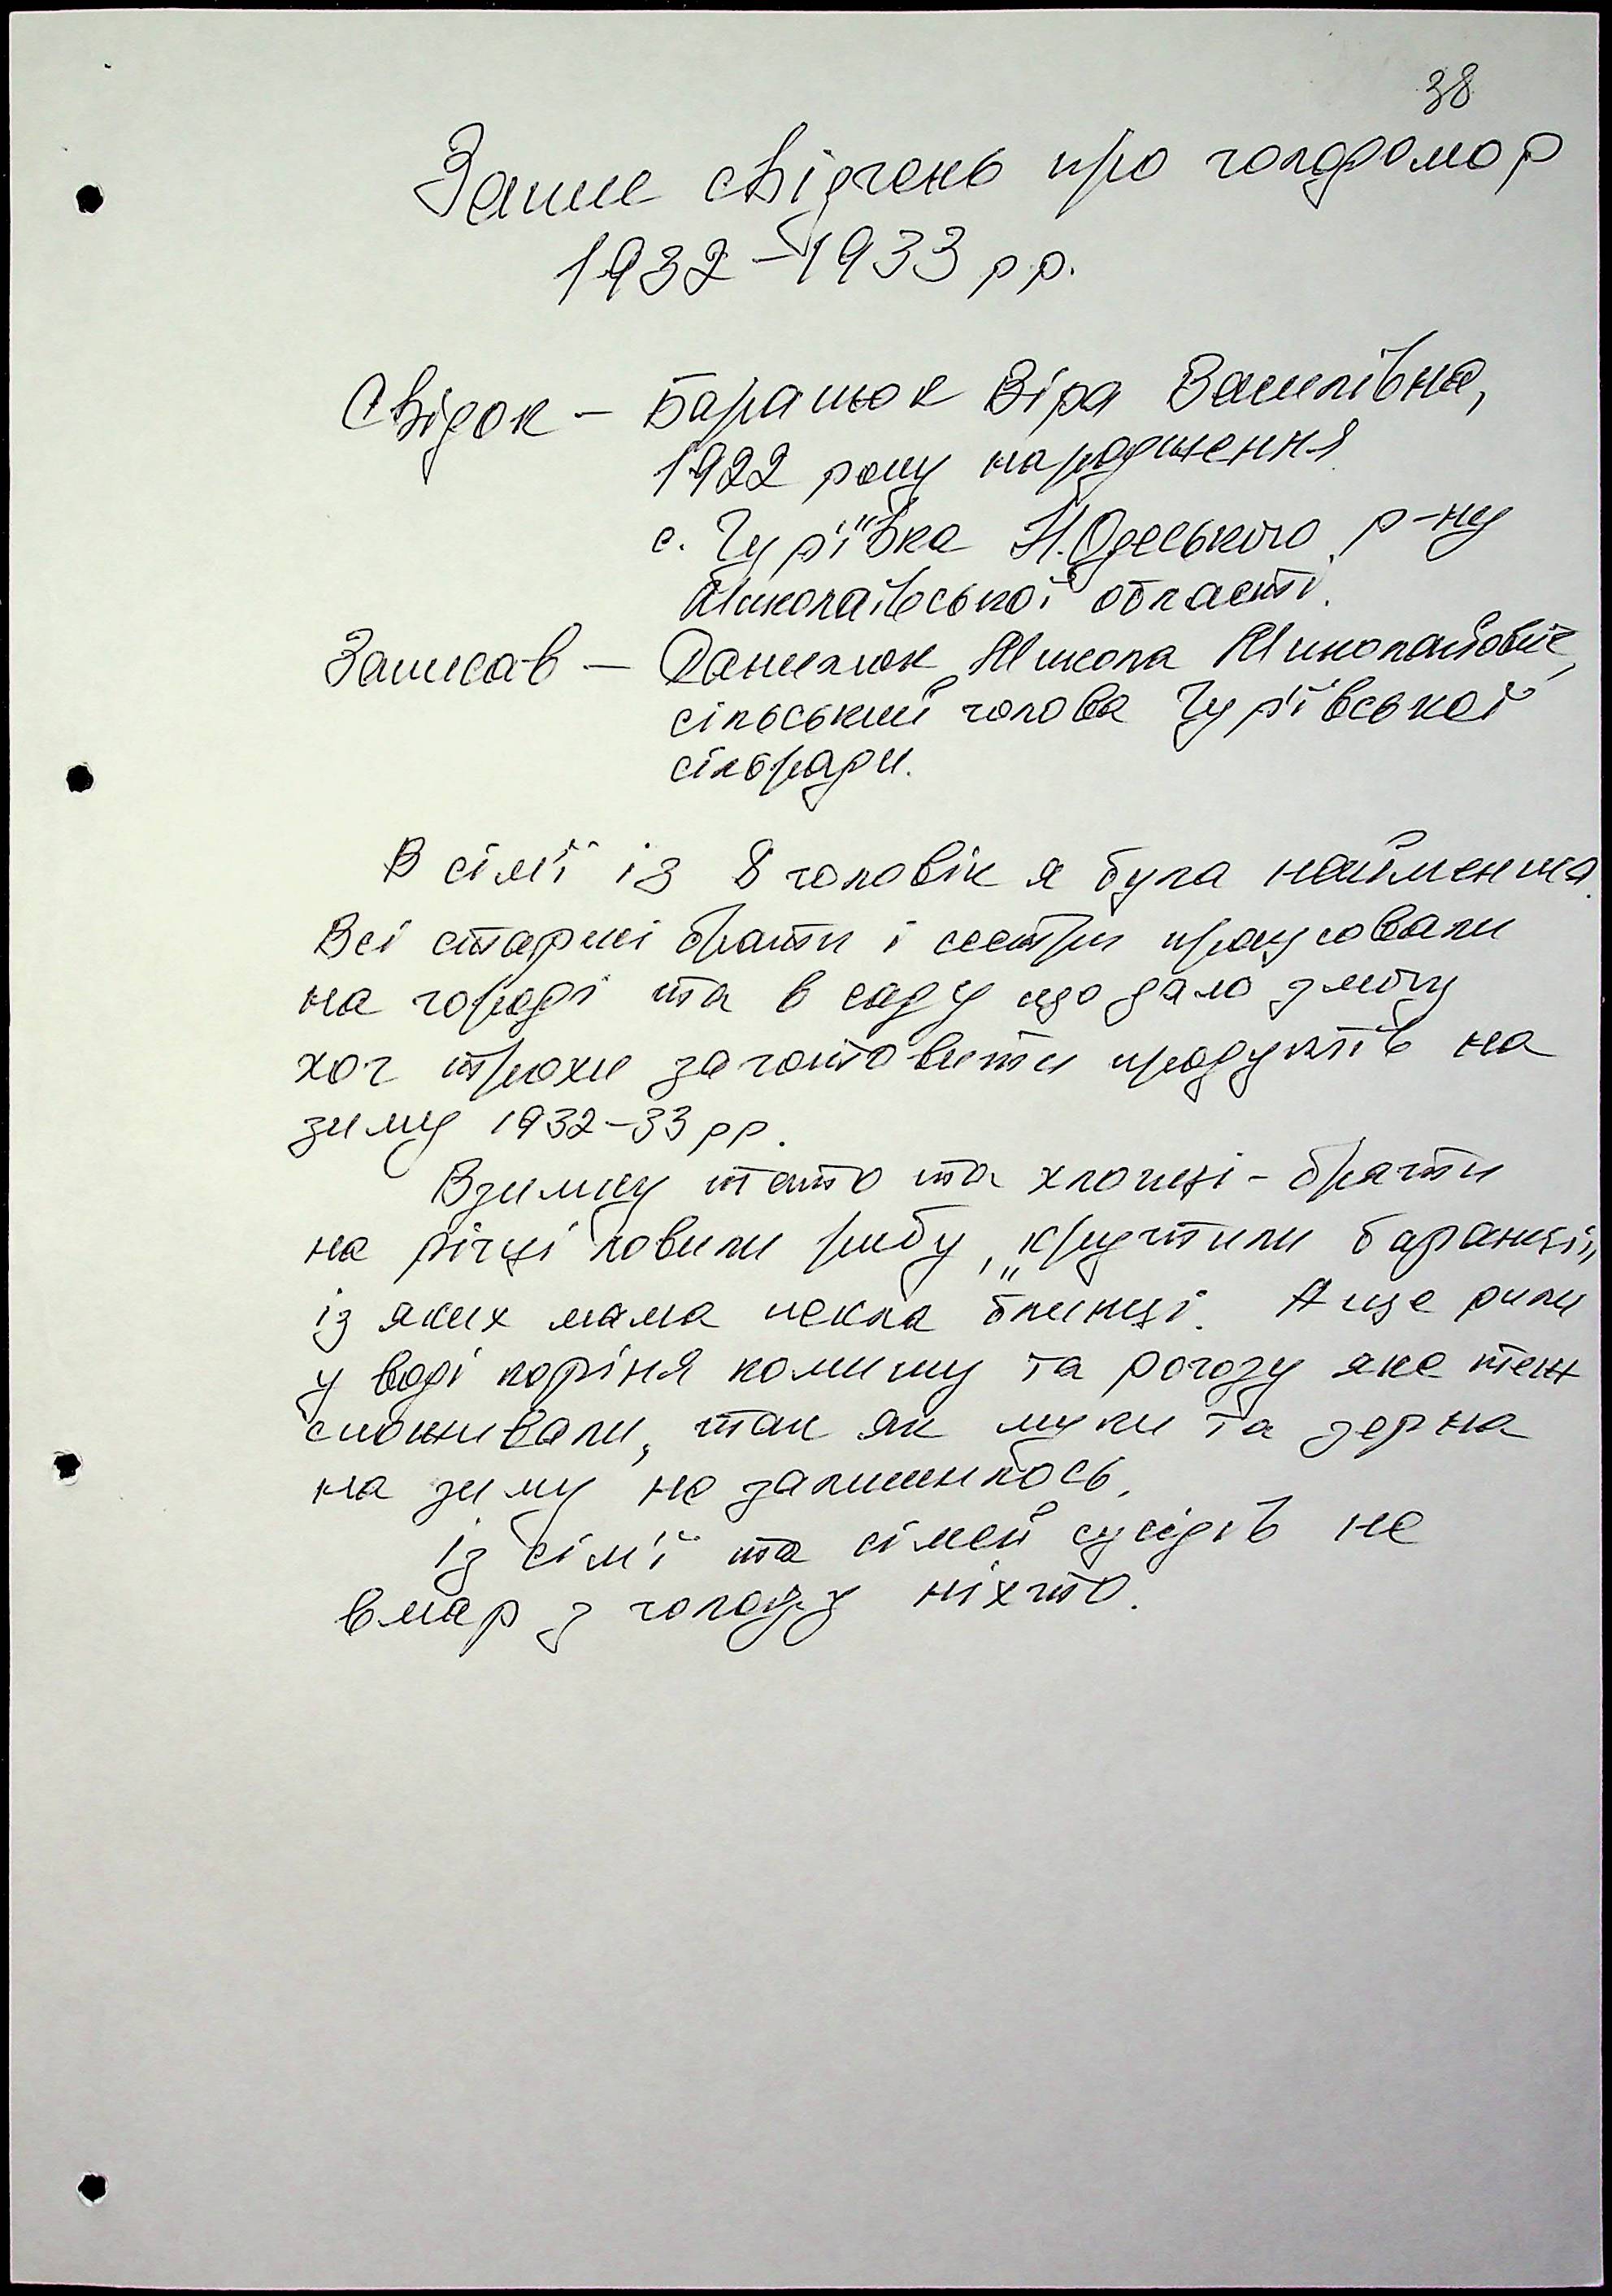 38
Запис свідчень про голодомор
1932–1933 рр.
Свідок – Баранюк Віра Василівна,
1922 року народження
с. Гур'ївка Н.Одеського р-ну
Миколаївської області.
Записав – Данилюк Микола Миколайович,
сільський голова Гур'ївської
сільради.
В сім'ї із 8 чоловік я була найменша.
Всі старші брати і сестри працювали
на городі та в саду що дало змогу
хоч трохи заготовити продуктів на
зиму 1932–33 рр.
Взимку тато та хлопці-брати
на річці ловили рибу, „крутили баранці„
із яких мама пекла блинці. А ще рили
у воді коріня комишу та рогозу яке теж
споживали, так як муки та зерна
на зиму не залишилось.
Із сім'ї та сімей сусідів не
вмер з голоду ніхто.